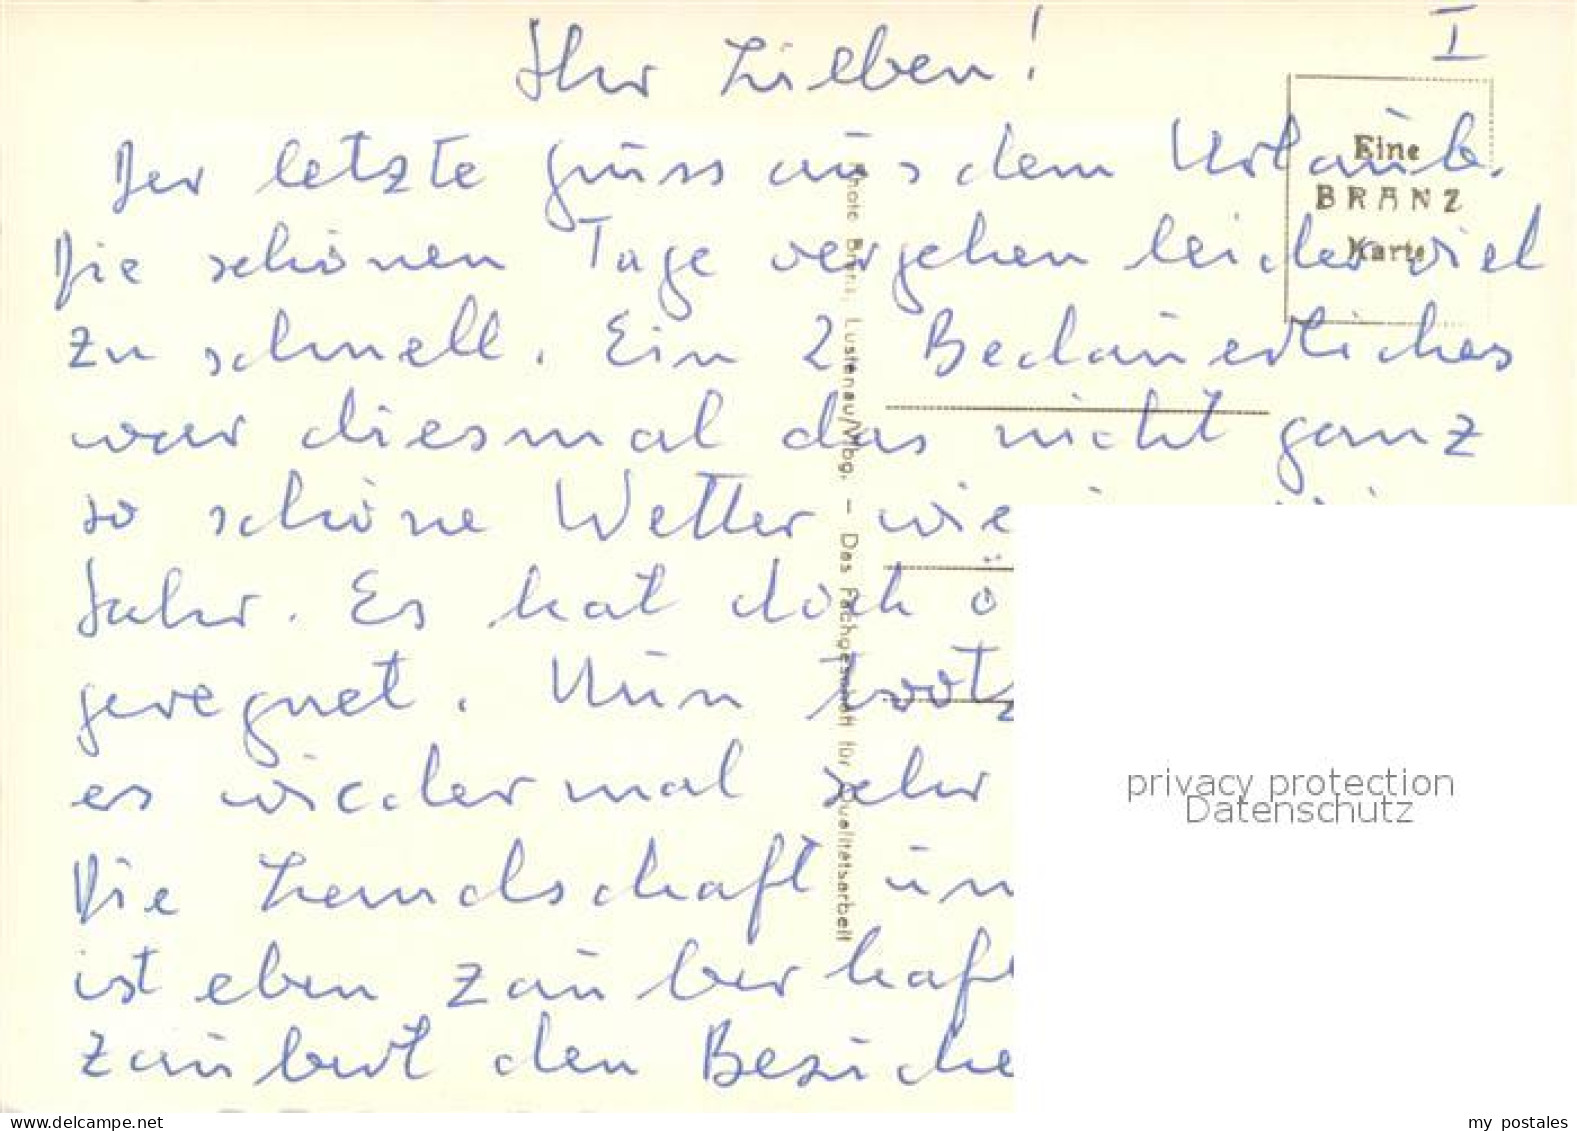 Ihr Lieben!
I
Der letzte Gruss aus dem Urlaub.
Die schönen Tage vergehen leider viel
zu schnell. Ein 2 Bedauerliches
war diesmal das nicht ganz
so schöne Wetter wie
Jahr. Es hat doch ö
geregnet. Nun trotz
es wiedermal sehr
Die Landschaft un
ist eben zauberhaf
zaubert den Besuche
Eine
BRANZ
Karte
Photo Branz, Lustenau/Vlbg. – Das Fachgeschäft für Qualitätsarbeit
privacy protection
Datenschutz
www.delcampe.net
my_postales